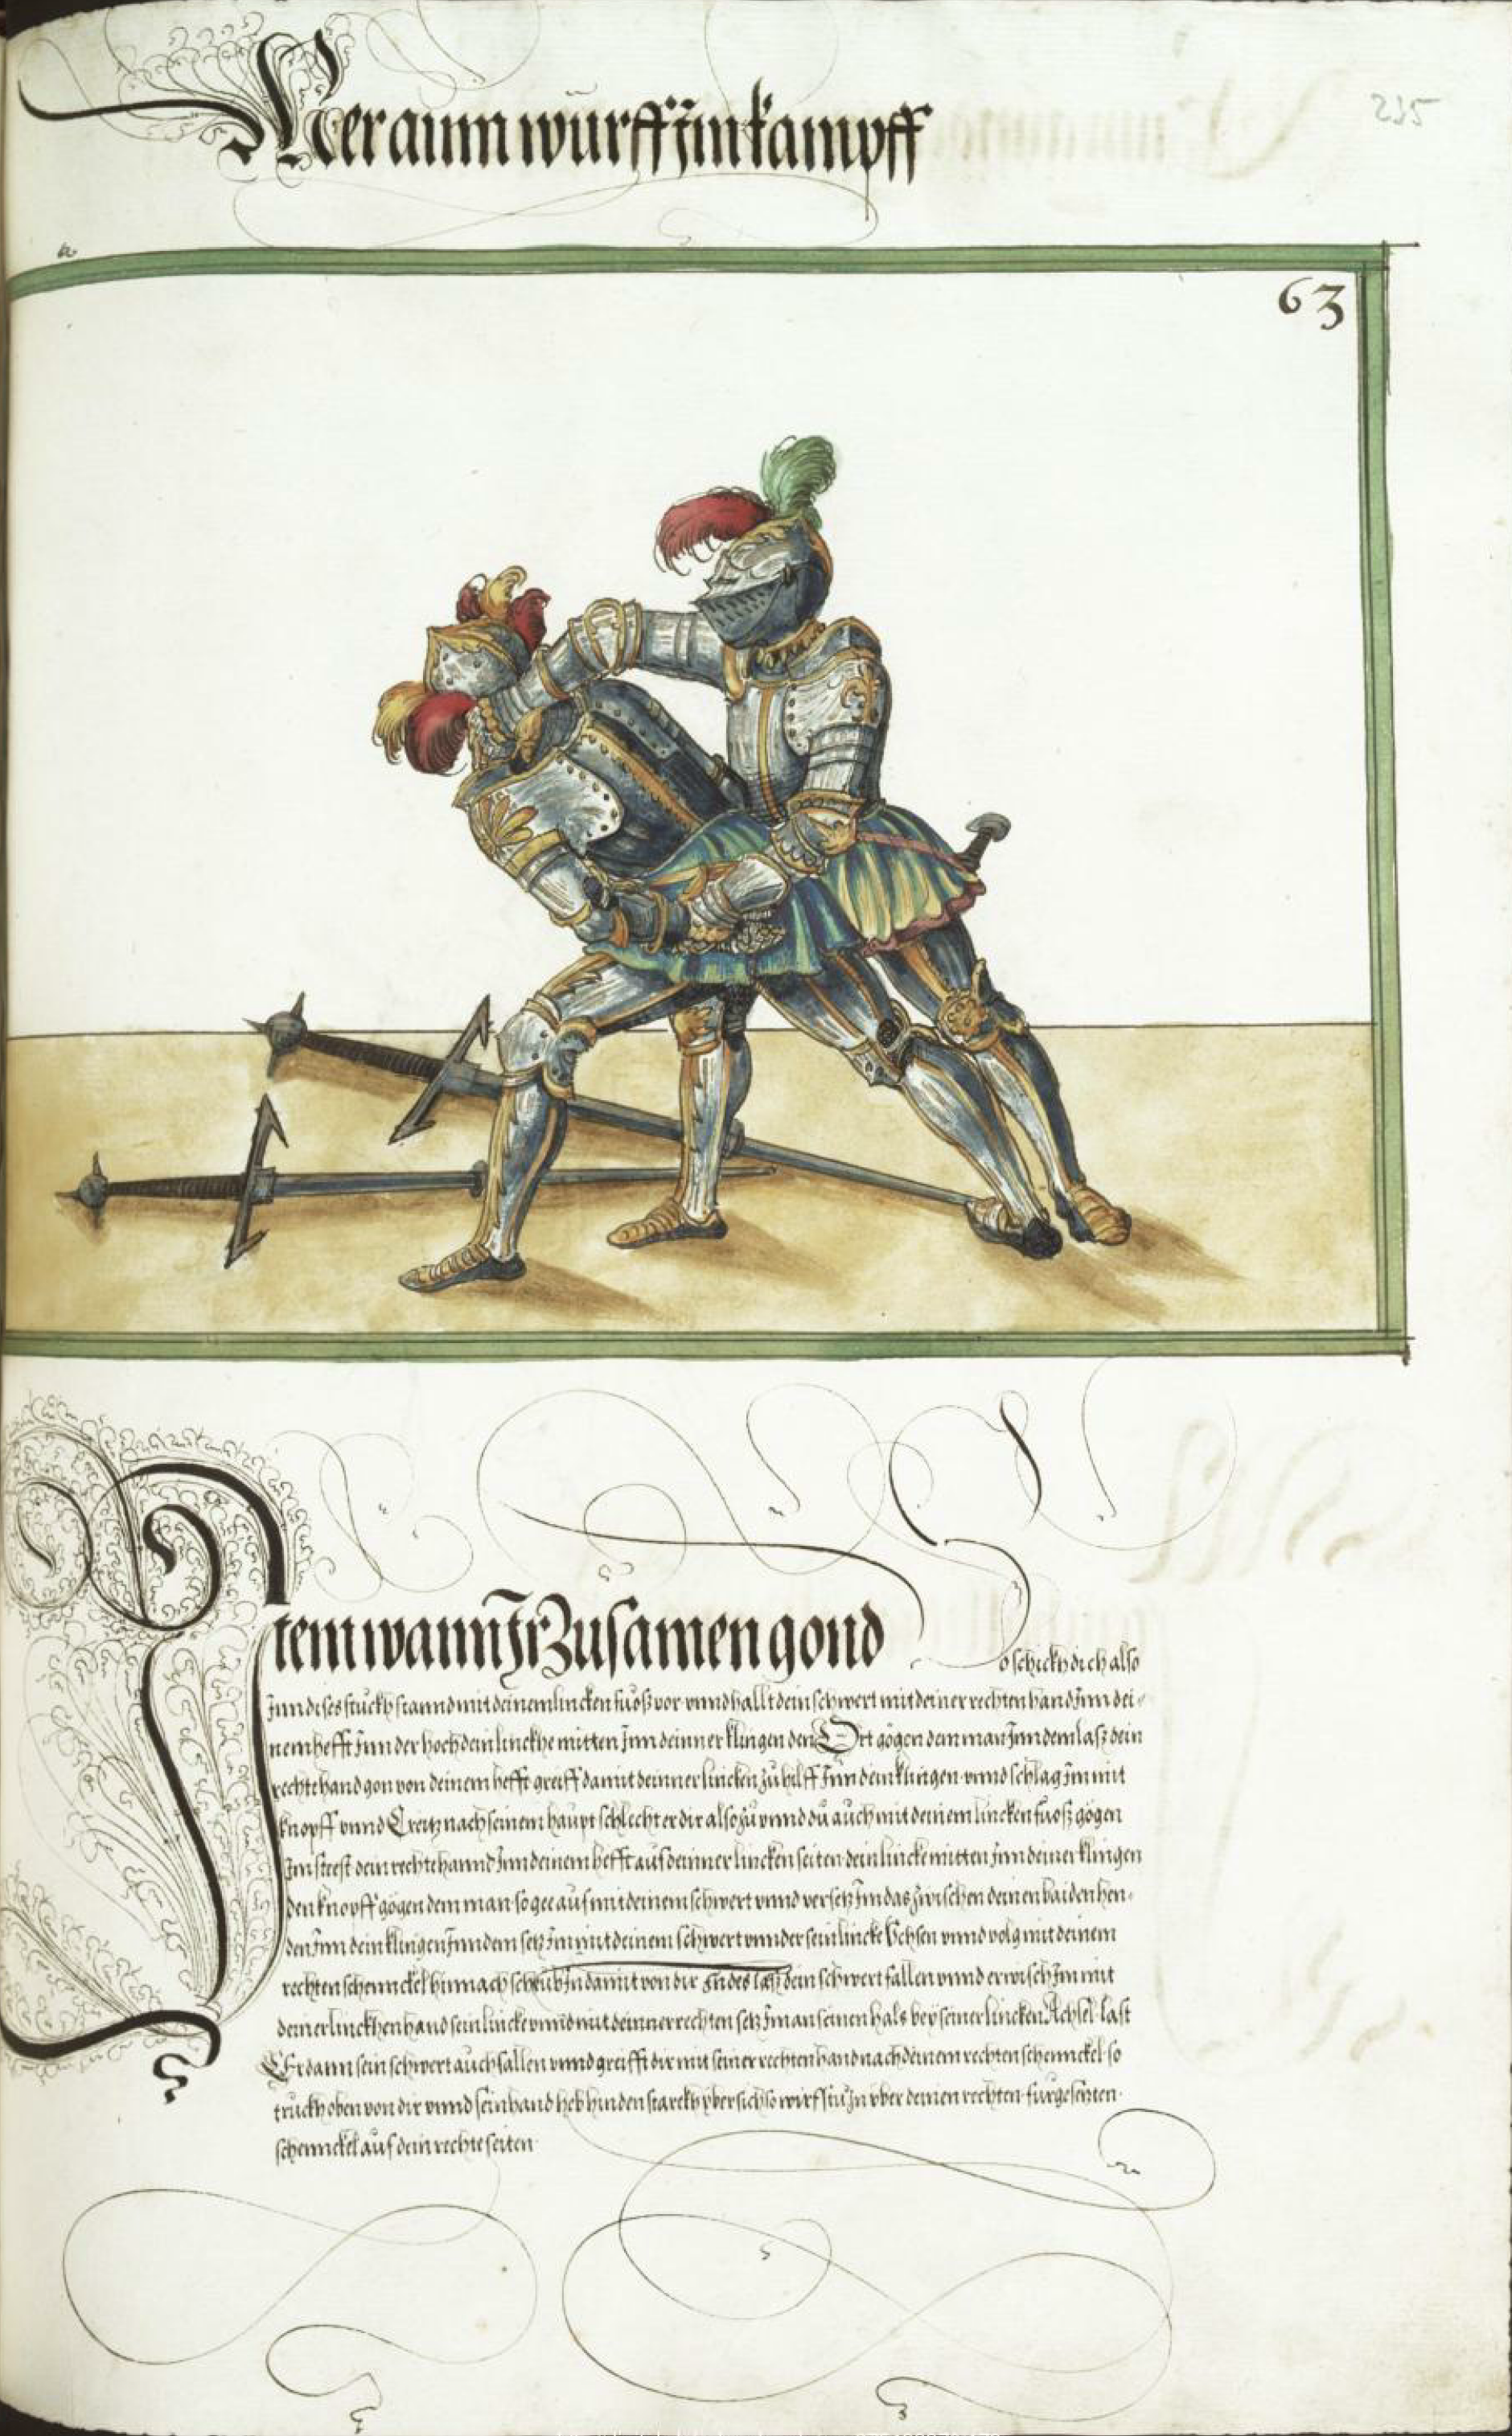 Mer ainn wurff Jm kampff
235
63
Item wann Jr Zusamen gond So schickh dich also
Jnn dises stuckh stannd mit deinem lincken fuoß vor vnnd hallt dein schwert mit deiner rechten hand Jnn dei-
nem hefft Jnn der hoch dein linckhe mitten Jnn deinner klingen den Ort gögen dem man Jnn dem lasz dein
rechte hand gon von deinem hefft greiff damit deinner lincken zu hilff Jnn dein klingen vnnd schlag Jm mit
knopff vnnd Creitz nach seinem haupt schlecht er dir also zu vnnd du auch mit deinem lincken fuosz gögen
Jm steest dein rechte hannd Jnn deinem hefft auf deinner lincken seiten dein lincke mitten Jnn deiner klingen
den knopff gögen dem man so gee auf mit deinem schwert vnnd versetz Jm das zwischen deinen baiden hen-
den Jnn dein klingen Jnn dem setz Jm mit deinem schwert vnnder sein lincke Vchsen vnnd volg mit deinem
rechten schennckel hinnach scheub Jn damit von dir Jndes lasz dein schwert fallen vnnd erwisch Jm mit
deiner linckhen hand sein lincke vnnd mit deinner rechten setz Jm an seinen hals bey seiner lincken Achsel last
Er dann sein schwert auch fallen vnnd greifft dir mit seiner rechten hand nach deinem rechten schennckel so
truckh oben von dir vnnd sein hand heb hinden starckh vbersich so wirfstu Jn vber deinen rechten furgesetzten
schennckel auf dein rechte seiten